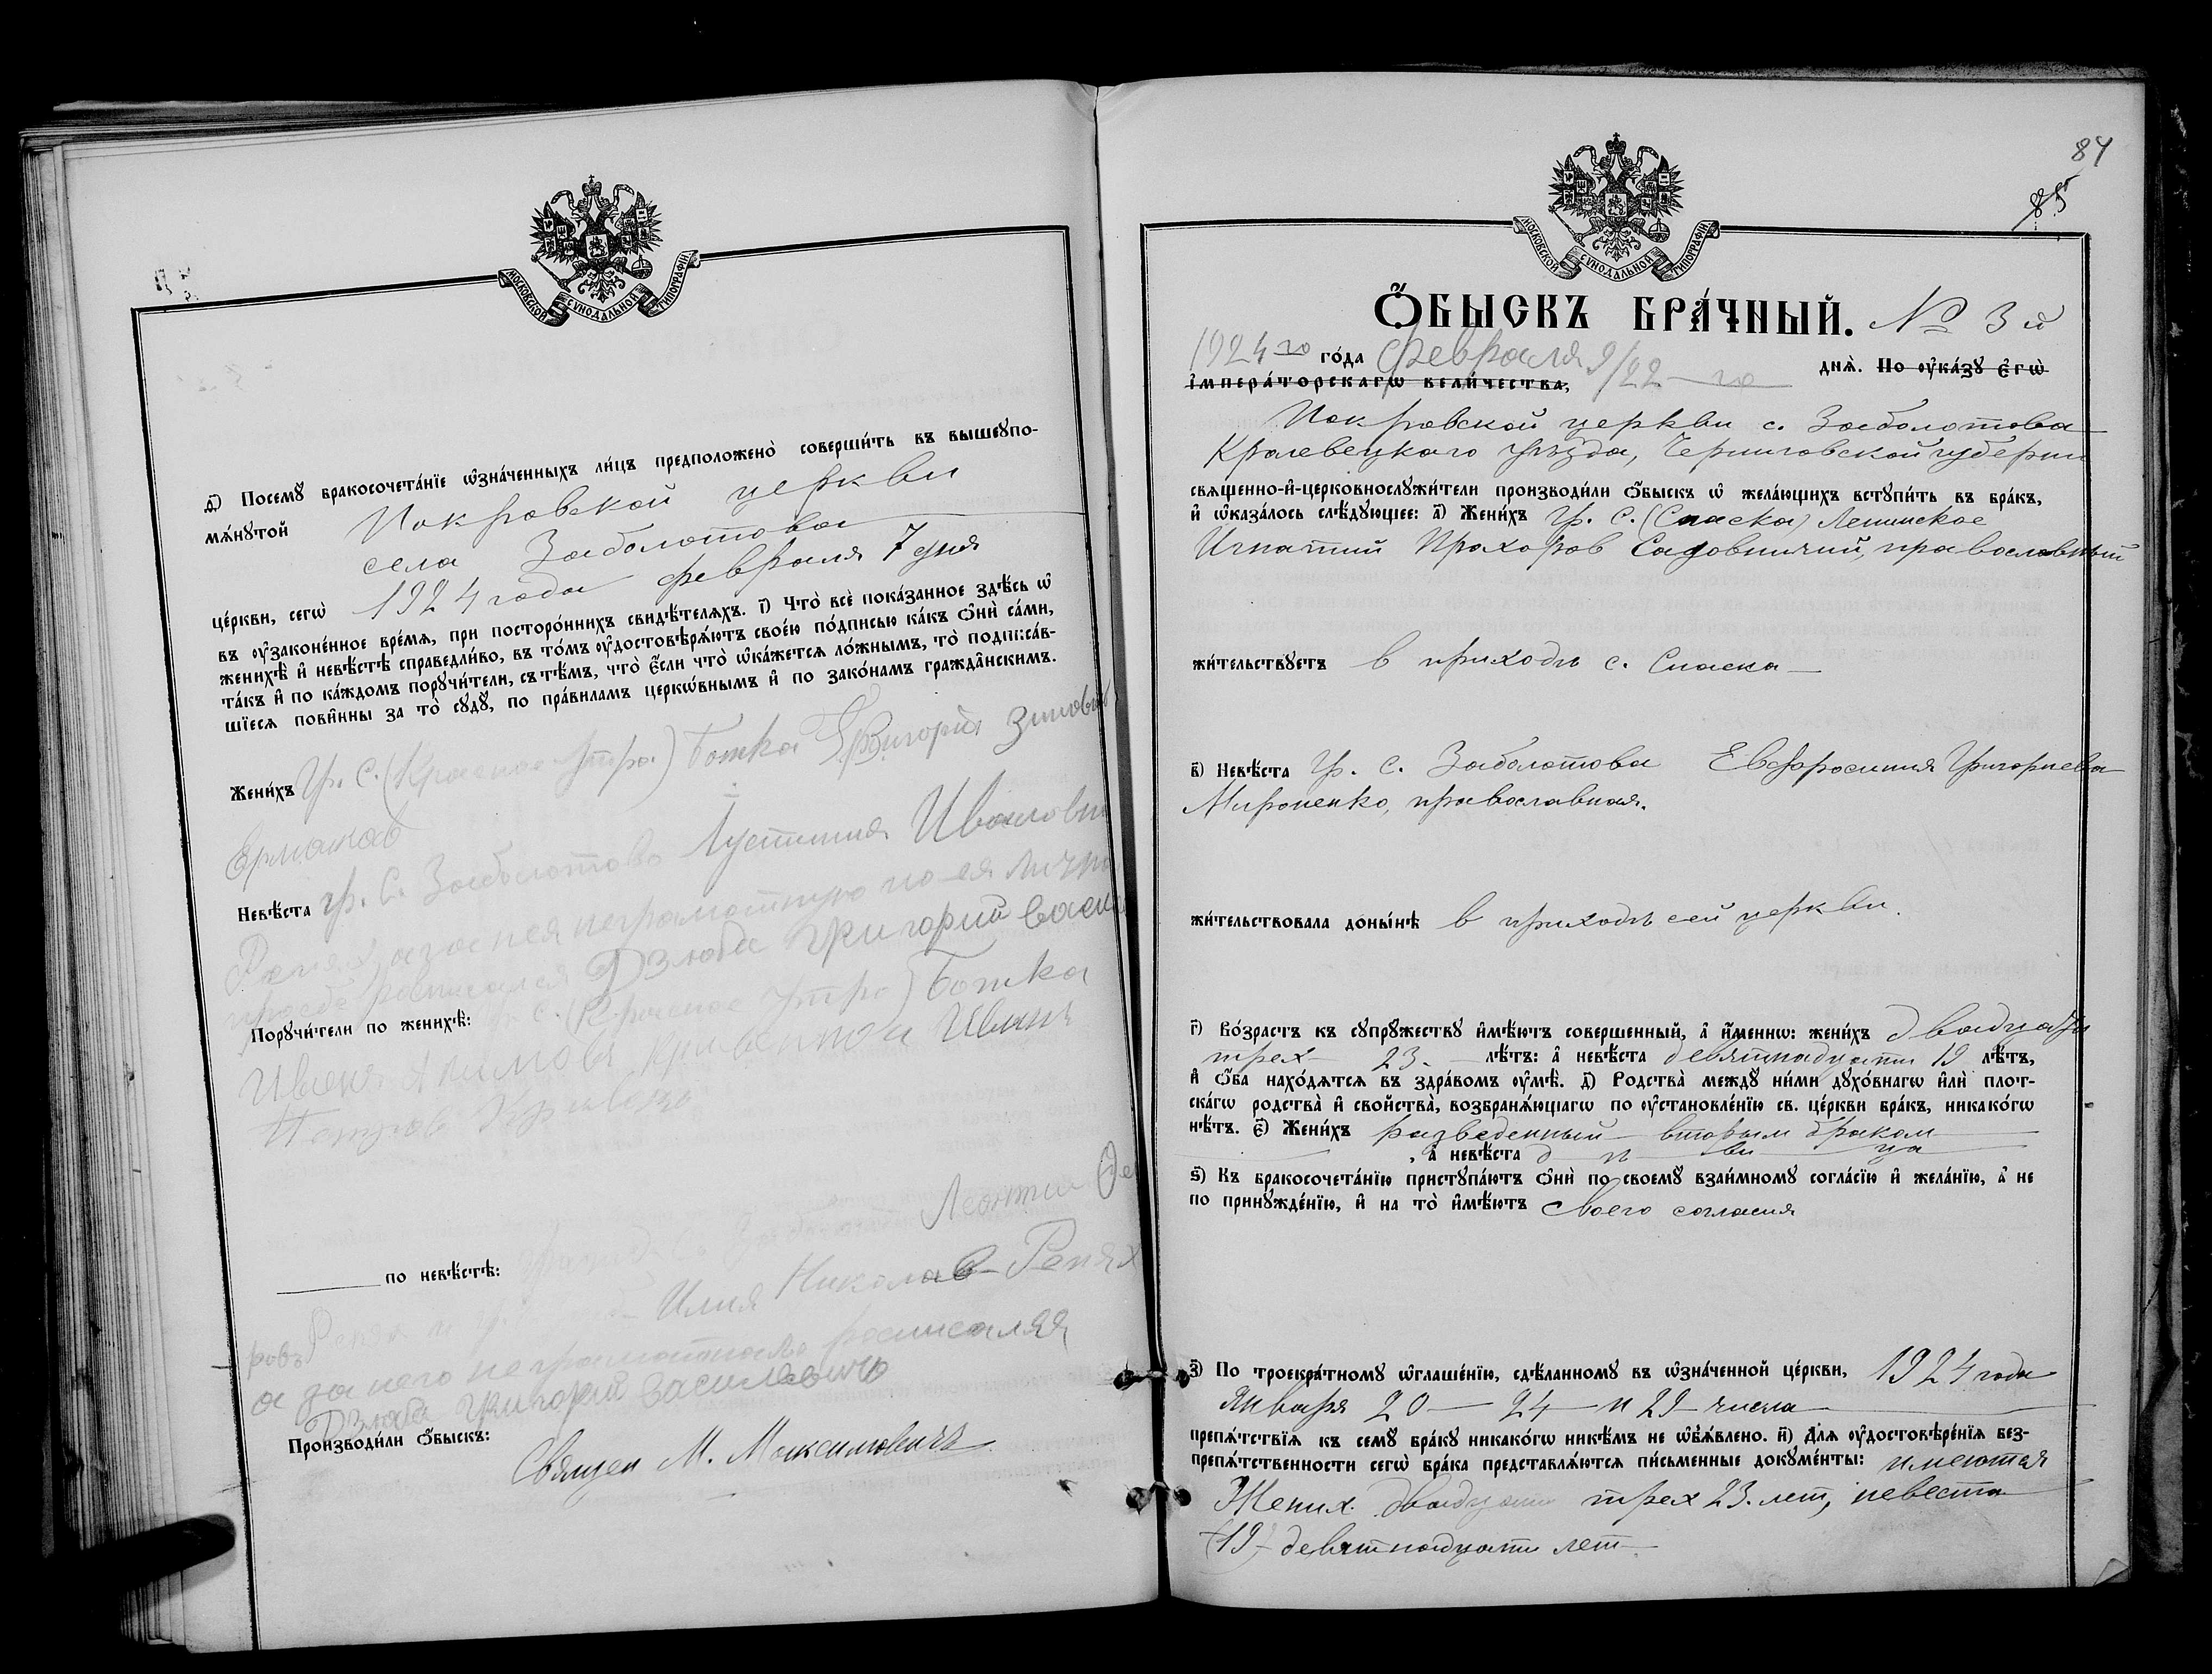 МОСКОВСКОЙ СѴНОДАЛЬНОЙ ТИПОГРАФІИ
д҃) Посемꙋ бракосочета́нїе ѡ҆зна́ченныхъ ли́цъ предположено̀ соверши́ть въ вышеꙋпо-
мѧ́нꙋтой Покровской церкви
села Заболотова
це́ркви, сегѡ̀ 1924 года февраля 7 дня
въ ᲂу҆законе́нное вре́мѧ, при посторо́ннихъ свидѣ́телѧхъ. і҃) Что̀ всѐ пока́занное здѣ́сь ѡ҆
женихѣ̀ и҆ невѣ́стѣ справедли́во, въ то́мъ ᲂу҆достовѣрѧ́ютъ свое́ю по́дписью ка́къ ѻ҆нѝ са́ми,
та́къ и҆ по ка́ждомъ порꙋчи́тели, съ тѣ́мъ, что̀ є҆́сли что̀ ѡ҆ка́жетсѧ ло́жнымъ, то̀ подписа́в-
шїесѧ пови́нны за то̀ сꙋдꙋ̀, по пра́виламъ церко́внымъ и҆ по зако́намъ гражда́нскимъ.
Жени́хъ Гр. С. (Красное Утро) Ботка Григорія Зиновій
Ермаков
Невѣ́ста гр. С. Заболотово Лустинія Ивановна
Репях за нея неграмотную по ея лично
прозбе росписался Дзюба Григорий Васил
Порꙋчи́тели по женихѣ̀: С. (Красное Утро) Ботка
Ивань
Петров
по невѣ́стѣ: Леонтий Фе
Илия Николав Репях
а за него неграмотнаго росписалея
Дзюба Григорий Василевичь
Производи́ли ѻ҆́быскъ: Священ М. Максимовичъ
84
85
МОСКОВСКОЙ СѴНОДАЛЬНОЙ ТИПОГРАФІИ
Ѻ҆́БЫСКЪ БРА́ЧНЫЙ. № 3 й
1924 го го́да февраля 9/22 го днѧ̀. По ᲂу҆ка́зꙋ є҆гѡ̀
і҆мпера́торскагѡ вели́чества,
Покровской церкви с. Заболотова
Кролевецкаго уѣзда, Черниговской губерни
свѧщенно-и҆-церковнослꙋжи́тели производи́ли ѻ҆́быскъ ѡ҆ жела́ющихъ встꙋпи́ть въ бра́къ,
и҆ ѡ҆каза́лось слѣ́дꙋющее: а҃) Жени́хъ гр. с. (Спаска) Ленинское
Игнатий Прохоров Садовничий, православный
жи́тельствꙋетъ в приходѣ с. Спаска
в҃) Невѣ́ста гр. с. Заболотова Евфросиния Григориева
Мироненко, православная.
жи́тельствовала доны́нѣ в приходѣ сей церкви.
г҃) Во́зрастъ къ сꙋпрꙋ́жествꙋ и҆мѣ́ютъ соверше́нный, а҆ и҆́меннѡ: жени́хъ двадцати
трех 23. лѣ́тъ: а҆ невѣ́ста девятнадцати 19 лѣ́тъ,
и҆ ѻ҆́ба нахо́дѧтсѧ въ здра́вомъ ᲂу҆мѣ̀. д҃) Родства̀ междꙋ̀ ни́ми дꙋхо́внагѡ и҆лѝ плот-
ска́гѡ родства̀ и҆ сво́йства, возбранѧ́ющагѡ по ᲂу҆становле́нїю св. це́ркви бра́къ, никако́гѡ
нѣ́тъ. є҃) Жени́хъ разведенный вторым браком
, а҆ невѣ́ста д е ви ца
ѕ҃) Къ бракосочета́нїю пристꙋпа́ютъ ѻ҆нѝ по своемꙋ̀ взаи́мномꙋ согла́сїю и҆ жела́нїю, а҆ не
по принꙋжде́нїю, и҆ на то̀ и҆мѣ́ютъ своего согласия
з҃) По троекра́тномꙋ ѡ҆глаше́нїю, сдѣ́ланномꙋ въ ѡ҆зна́ченной це́ркви, 1924 года
Января 20 24 и 29 числа
препѧ́тствїѧ къ семꙋ̀ бра́кꙋ никако́гѡ никѣ́мъ не ѡ҆б̾ѧ́влено. и҃) Длѧ ᲂу҆достовѣре́нїѧ без-
препѧ́тственности сегѡ̀ бра́ка представлѧ́ютсѧ пи́сьменные докꙋме́нты: имеются
Жених двадцати трех 23. лет, невеста
(19) девятнадцати лет